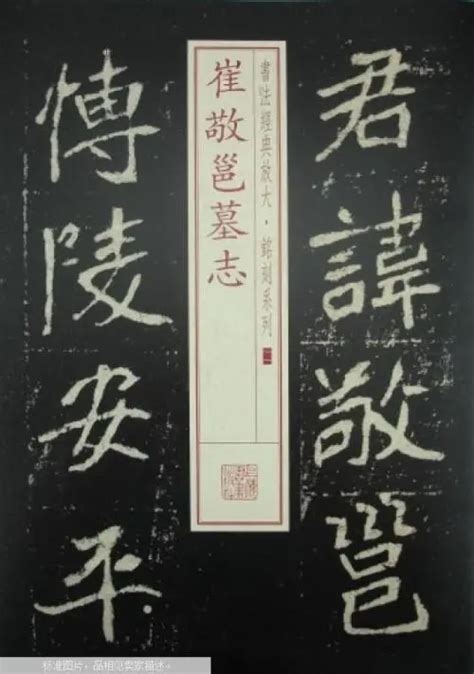 君諱敬邕
書法經典放大·銘刻系列
崔敬邕墓志
博陵安平
标准图片,品相见卖家描述。